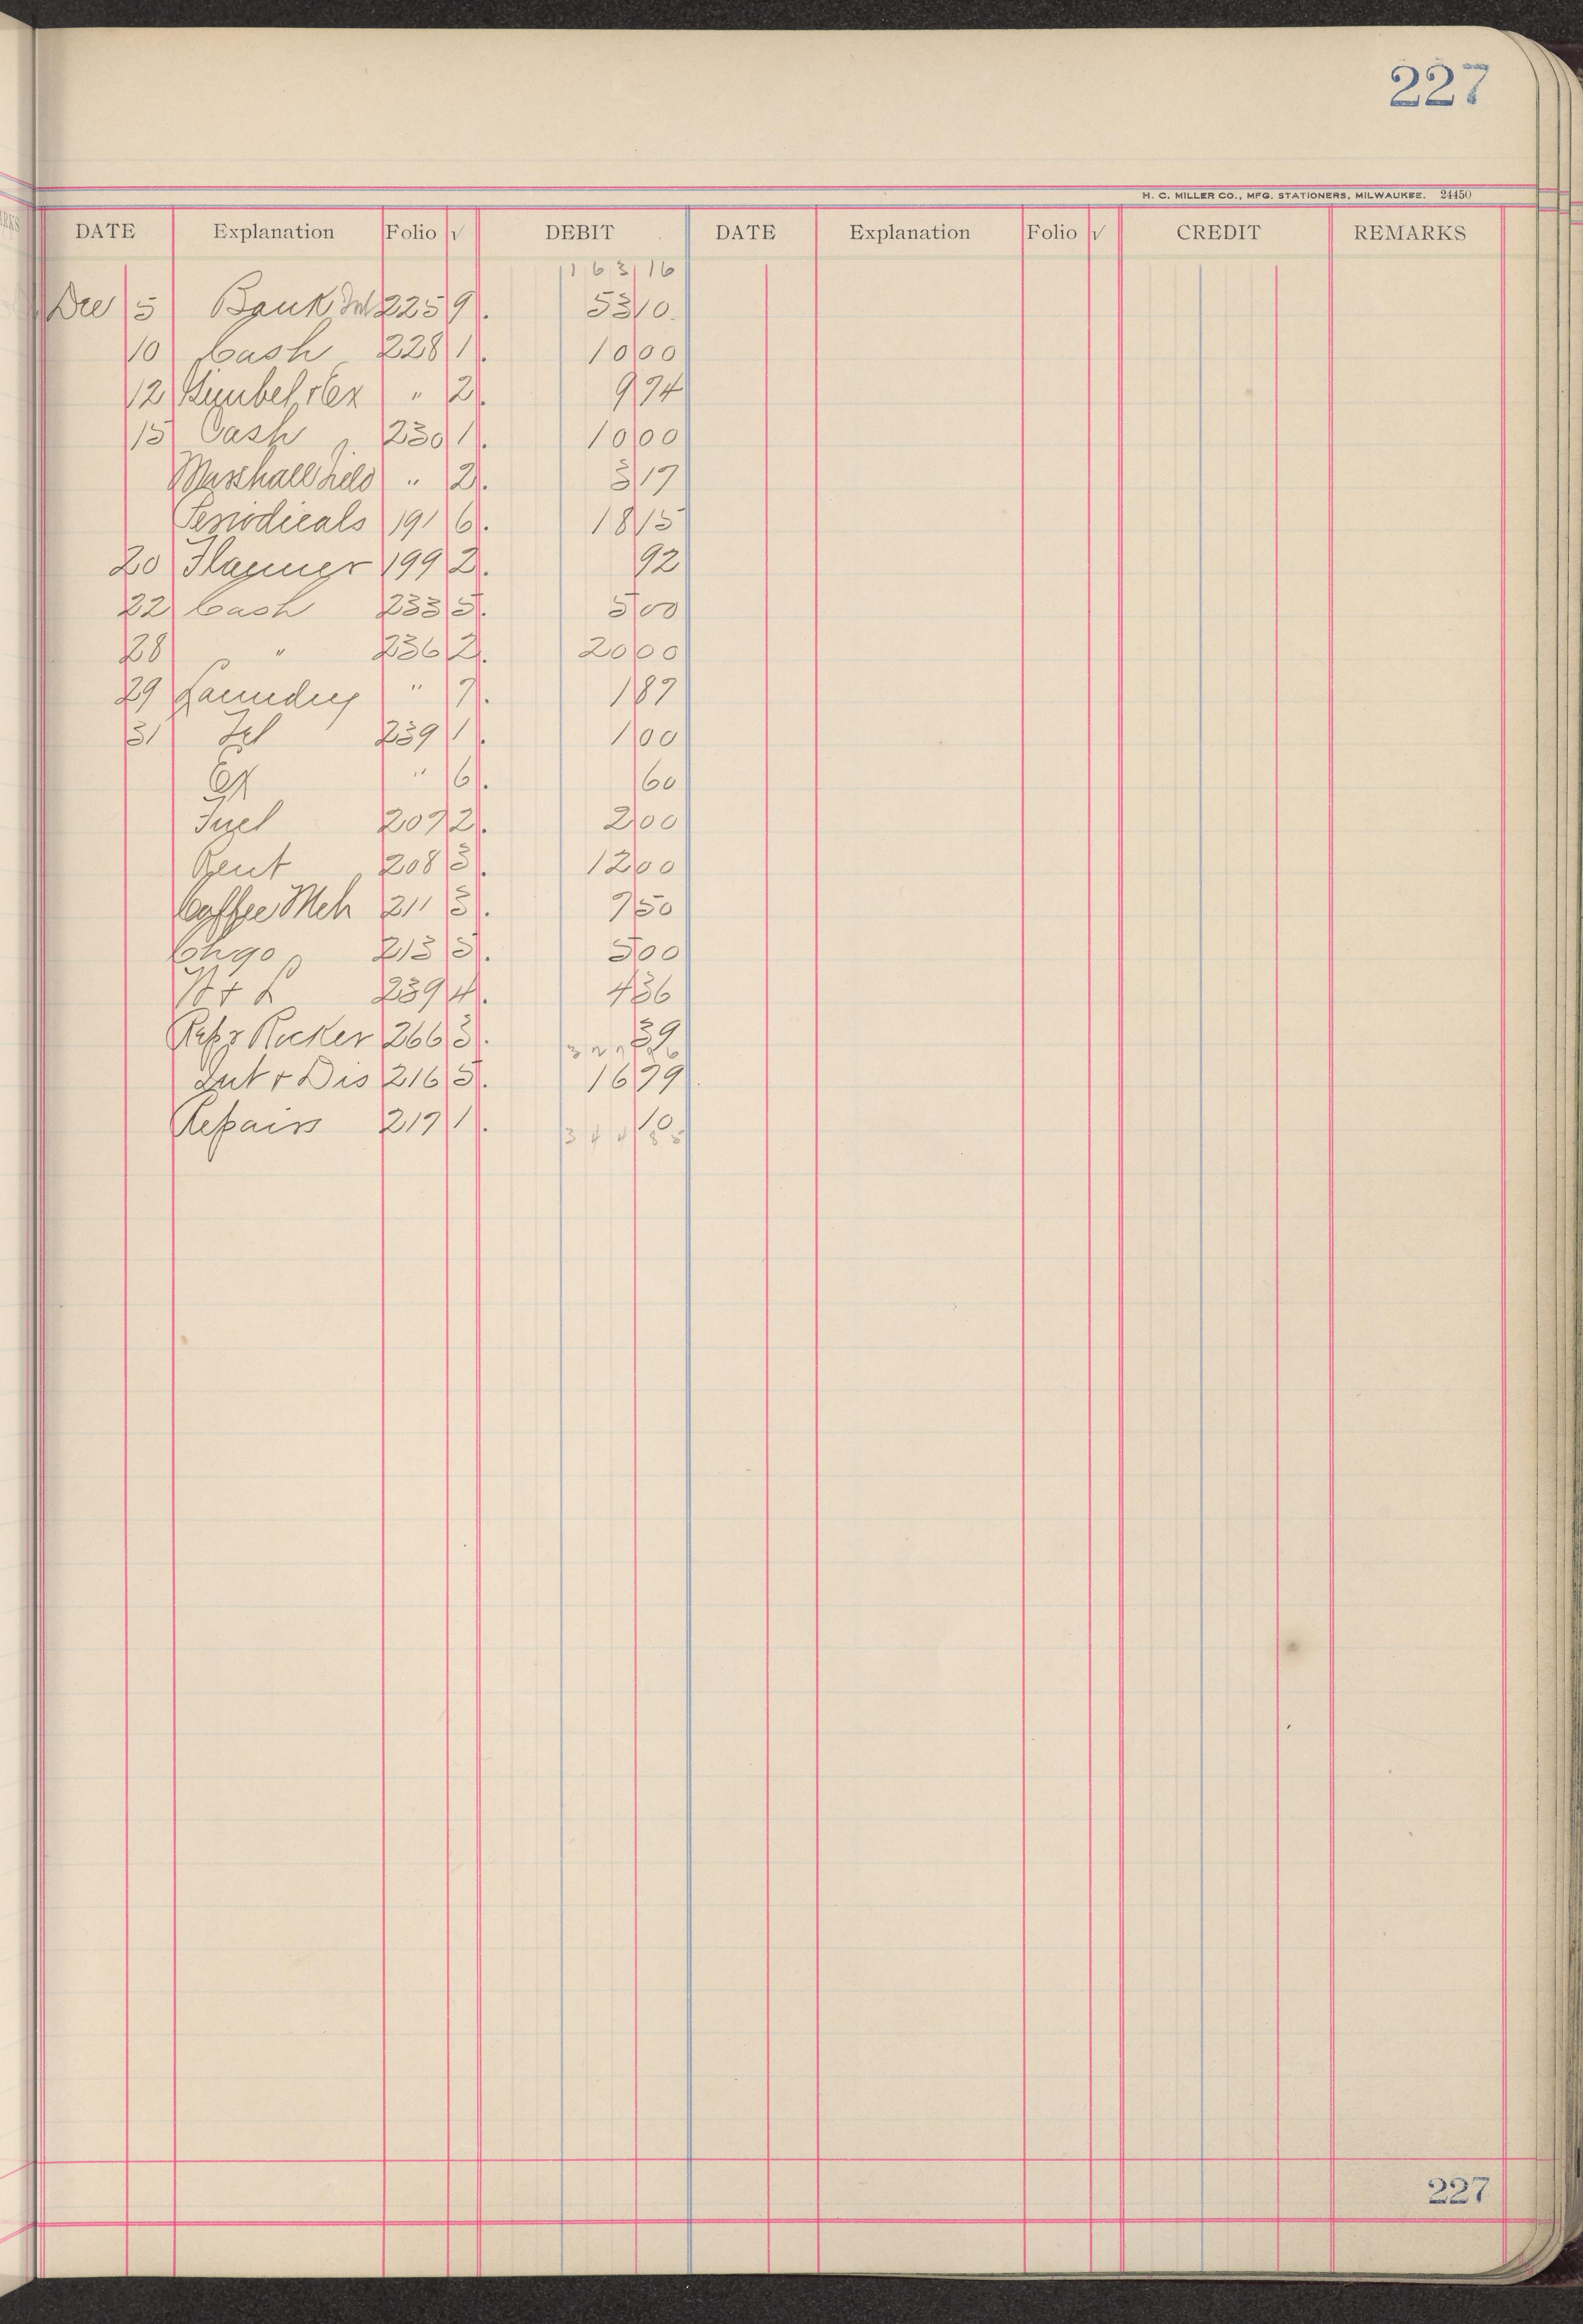 227
H. C. MILLER CO., MFG. STATIONERS, MILWAUKEE. 24450
DATE Explanation Folio √ DEBIT DATE Explanation Folio √ CREDIT REMARKS
163 16
Dec 5 Bank Int 225 9. 53 10
10 Cash 228 1. 10 00
12 Gimbel + Ex " 2. 9 74
15 Cash 230 1. 10 00
Marshall Field " 2. 3 17
Periodicals 191 6. 18 15
20 Flanner 199 2. 92
22 Cash 233 5. 5 00
28 " 236 2. 20 00
29 Laundry " 7. 1 87
31 Tel 239 1. 1 00
Ex " 6. 60
Fuel 207 2. 2 00
Rent 208 3. 12 00
Coffee Mch 211 3. 7 50
Chgo 213 5. 5 00
239 4. 4 36
Rocker 266 3. 39
Int + Dis 216 5. 16 79
Repairs 217 1. 10
344 85
227